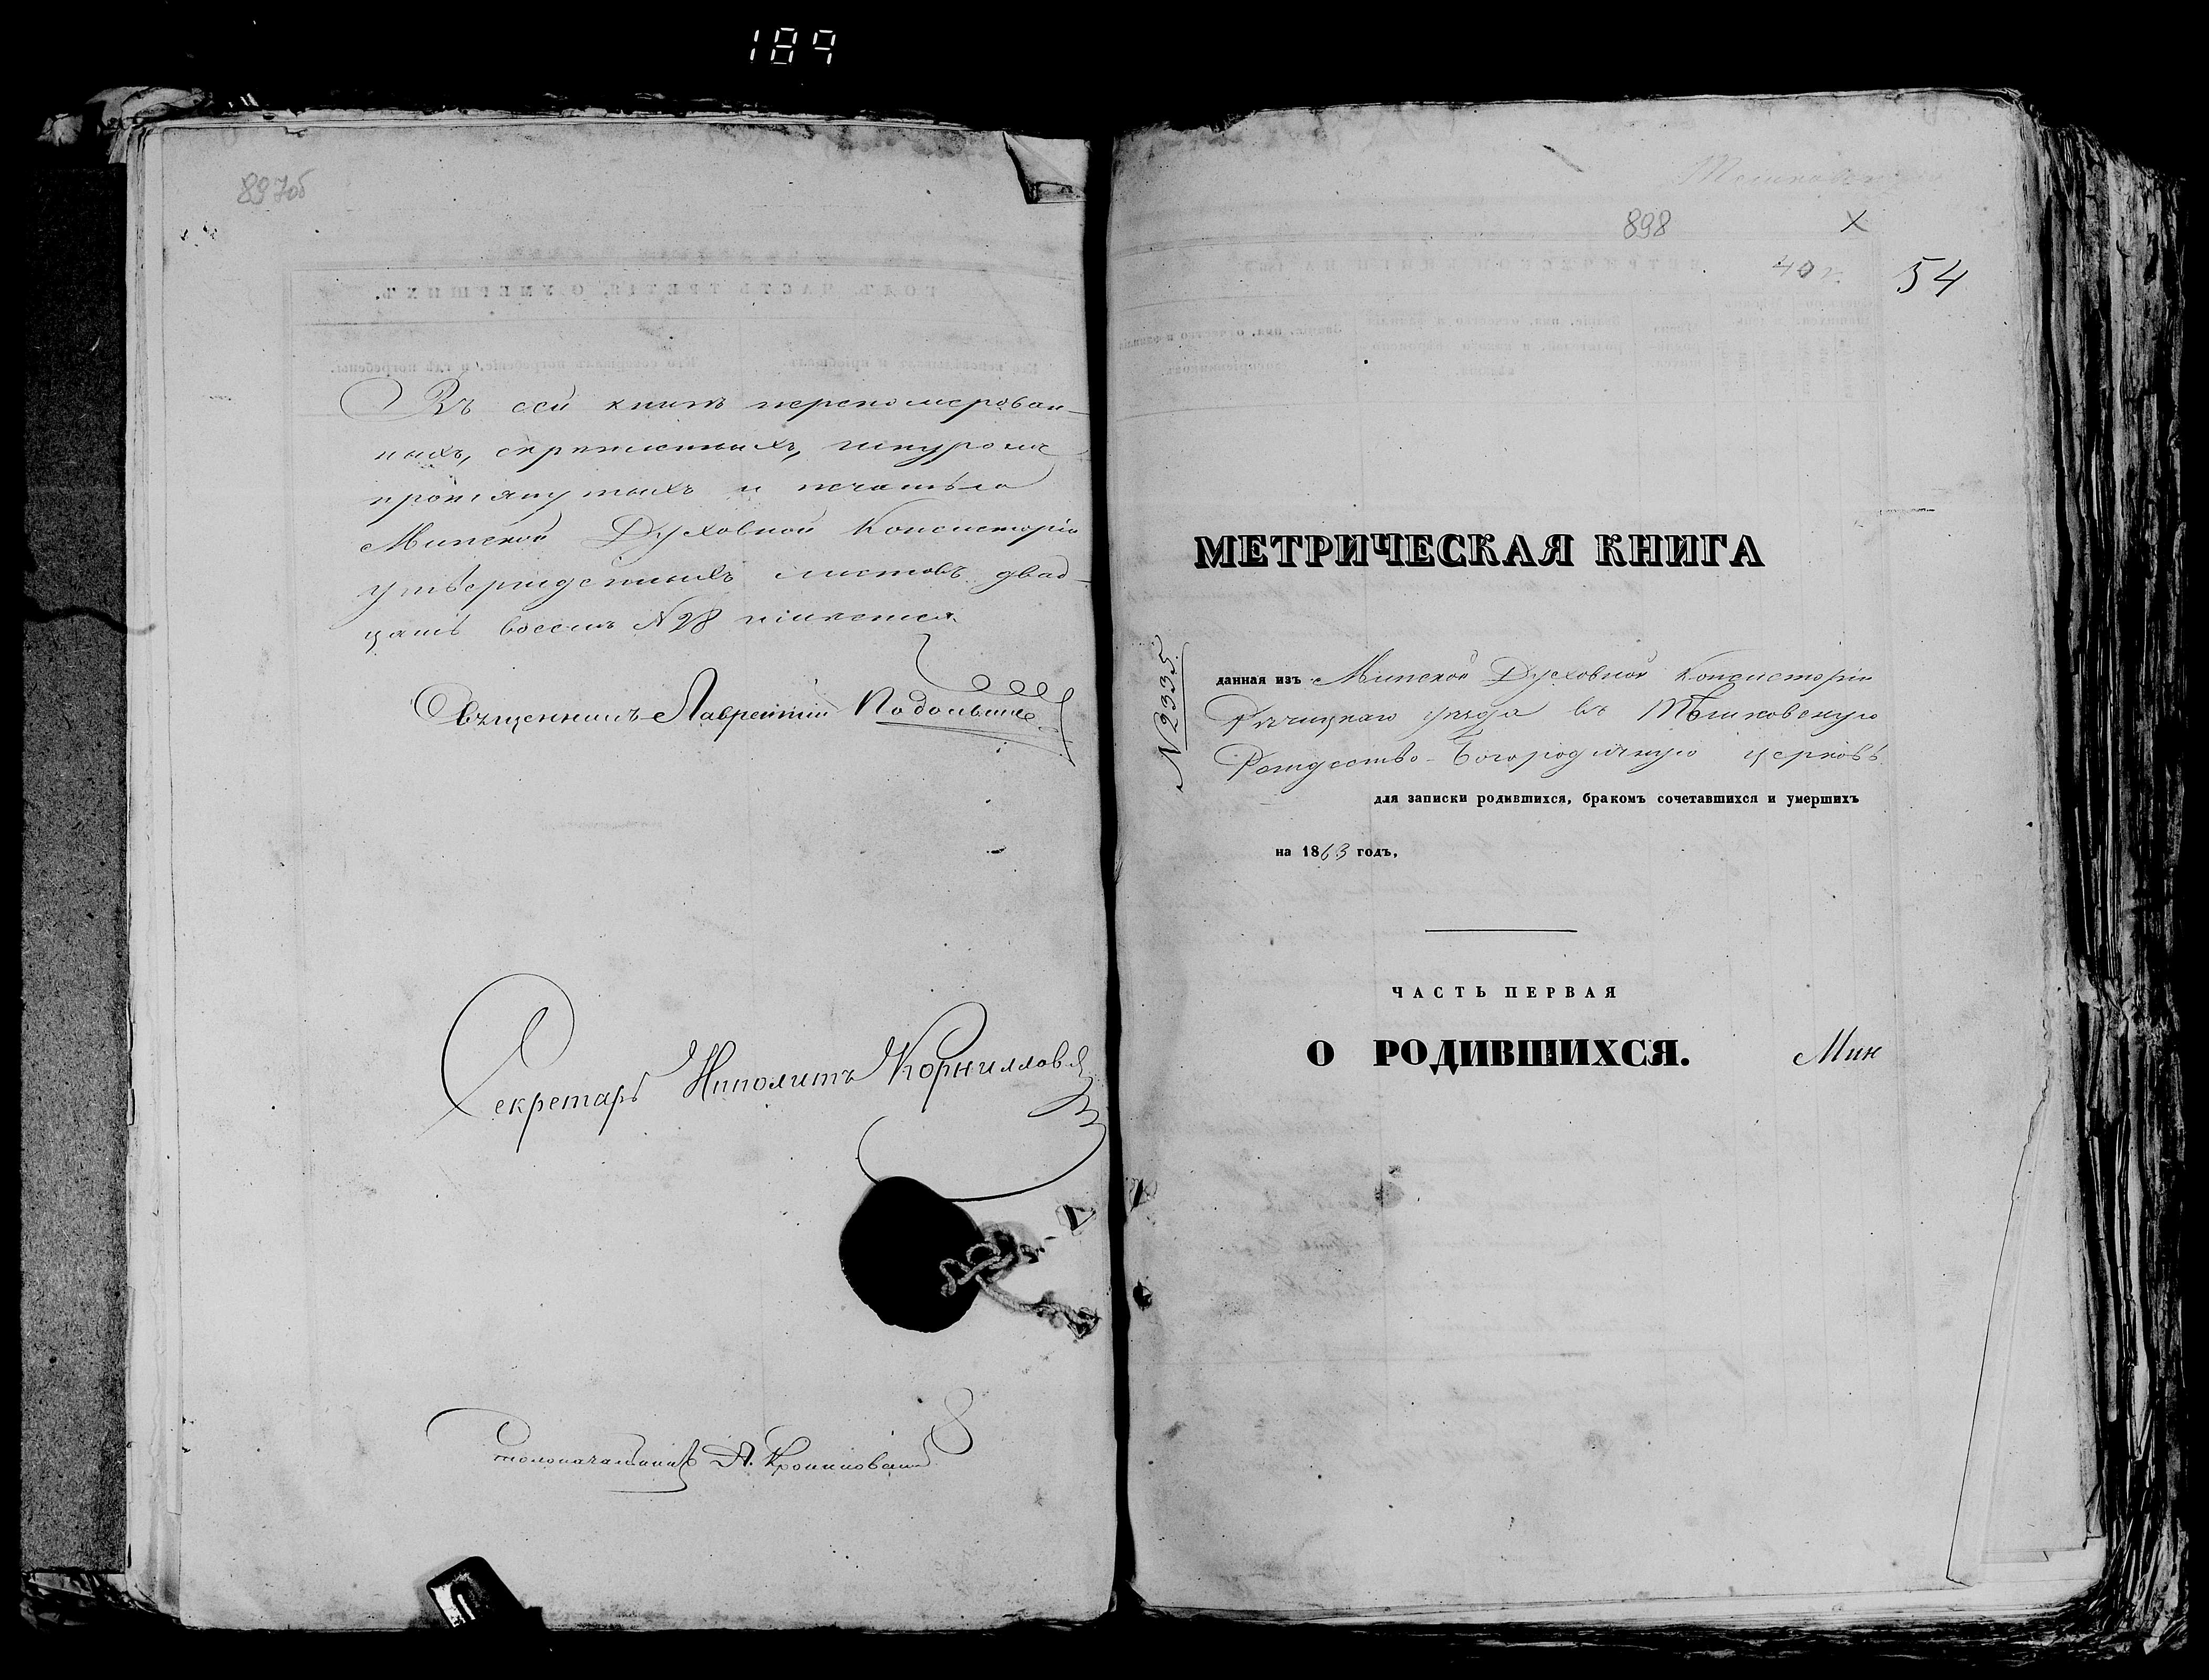 189
897об
Въ сей книгѣ перенумерован-
ныхъ, скрѣпленныхъ, шнуромъ
протянутыхъ и печатью
Минской Духовной Консисторіи
утвержденныхъ листовъ двад-
цать восемь № 28 имѣется.
Священникъ Лаврентій
Секретарь Ипполитъ Корниловъ
Столоначальникъ А.
898
X
54
МЕТРИЧЕСКАЯ КНИГА
№ 2335
данная изъ Минской Духовной Консисторіи
Рѣчицкаго уѣзда въ Тѣшковскую
Рождество-Богородичную церковь
для записки родившихся, бракомъ сочетавшихся и умершихъ
на 1863 годъ.
ЧАСТЬ ПЕРВАЯ
О РОДИВШИХСЯ.
Мин